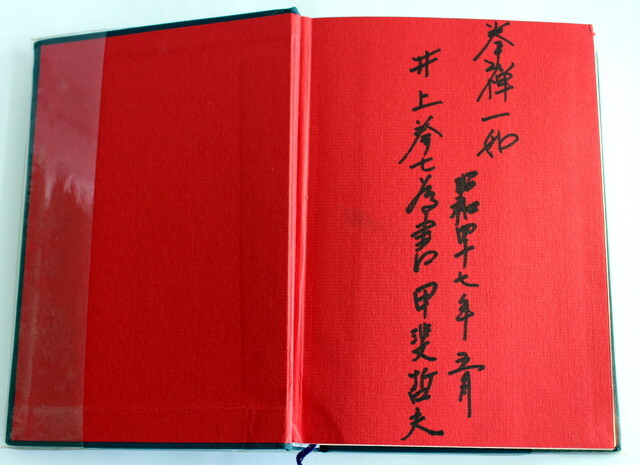 拳禅一如
昭和四十七年五月
井上拳七為書 甲斐哲夫